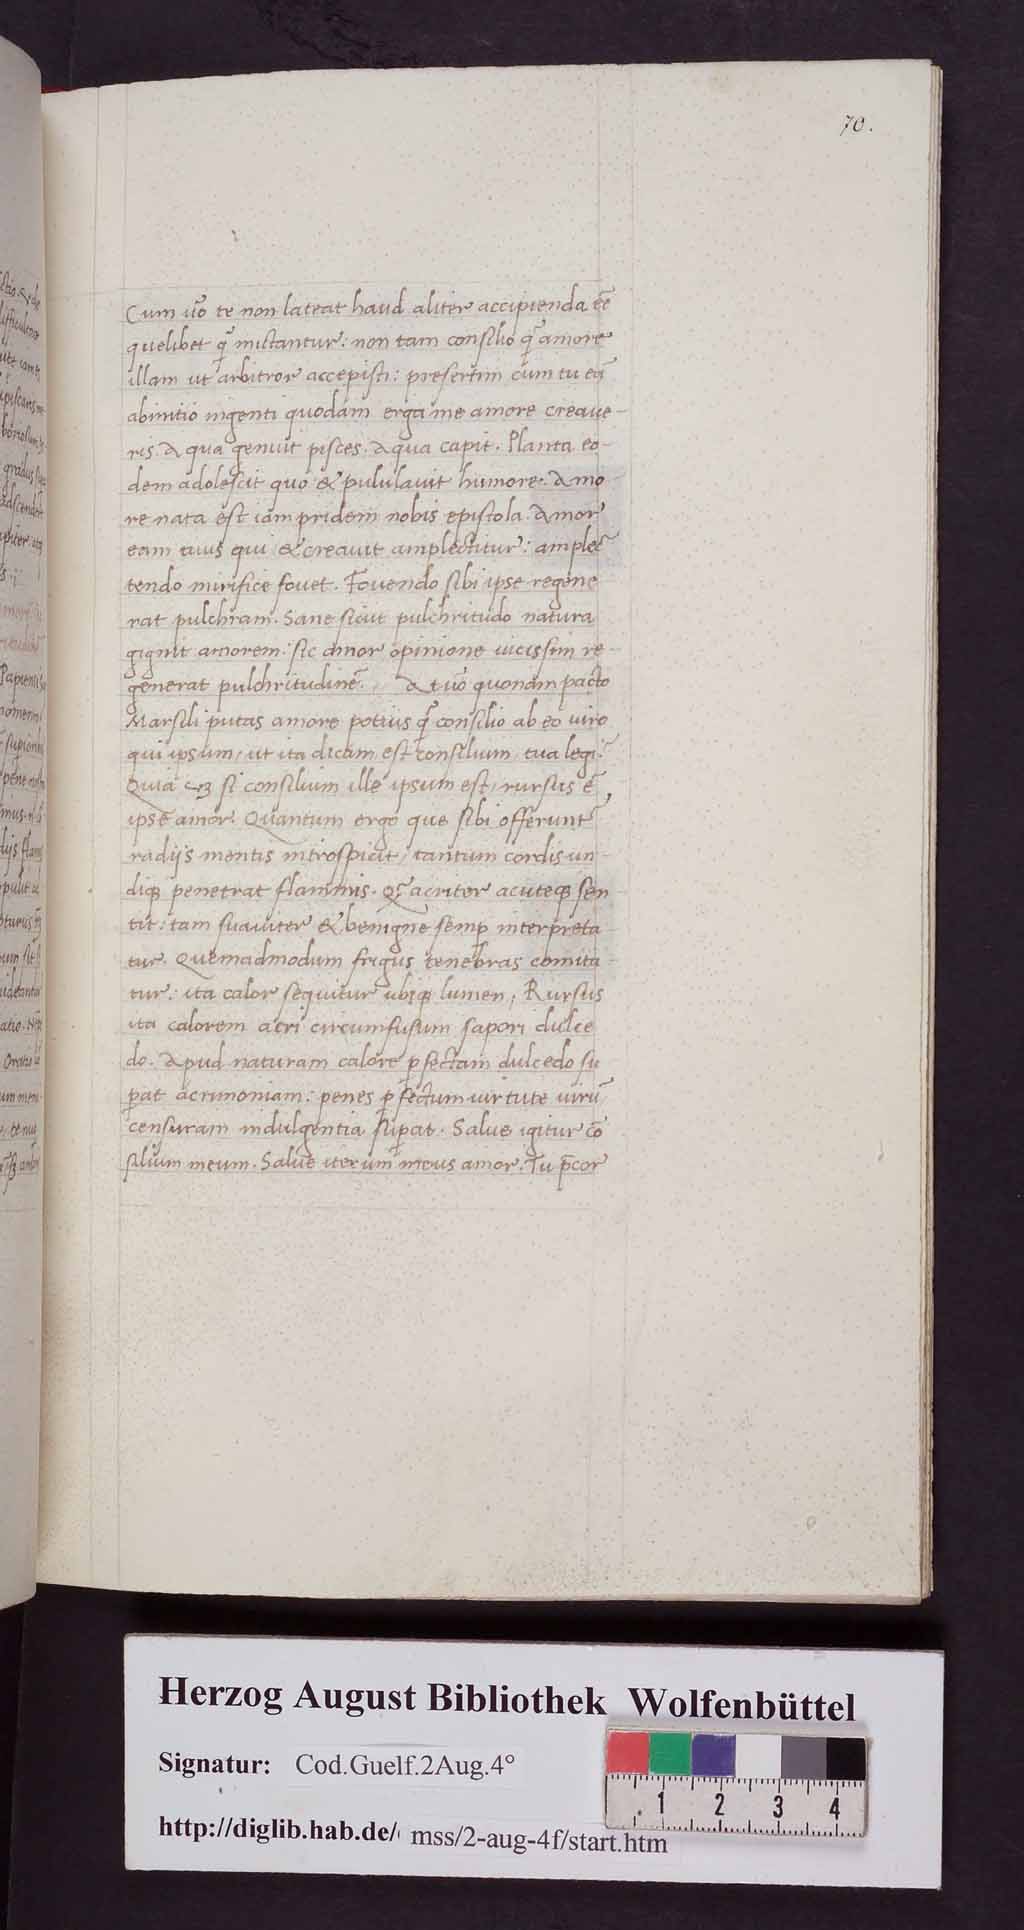 70.
Cum uō te non lateat haud aliter accipienda eē
quelibet q̄ mictantur: non tam consilio q̄ amore
illam ut arbitror accepisti: presertim cum tu eā
abinitio ingenti quodam erga me amore creaue-
ris. Aqua genuit pisces. aqua capit. Planta eo-
dem adolescit quo & pululauit humore. Amo
re nata est iam pridem nobis epistola. Amor
eam tuus qui & creauit amplectitur: amplec̄
tendo mirifice fouet. Fouendo sibi ipse regene
rat pulchram. Sane sicut pulchritudo natura
gignit amorem: sic amor opinione uicissim re-
generat pulchritudinē. At uō quonam pacto
Marsili putas amore potius q̄ consilio ab eo uiro
qui ipsum, ut ita dicam, est consilium, tua legi?
Quia si consilium ille ipsum est, rursus ē
ipse amor. Quantum ergo que sibi offerunt̄
radijs mentis introspicit, tantum cordis un-
diqꝫ penetrat flammis. Q̄ acriter acuteqꝫ sen
tit: tam suauiter & benigne semꝑ interpreta-
tur. Quemadmodum frigus tenebras comita-
tur: ita calor sequitur ubiqꝫ lumen, Rursus
ita calorem acri circumfusum sapori dulce
do. Apud naturam calore ꝑfectam dulcedo su
ꝑat acrimoniam: penes ꝑfectum uirtute uirū
censuram indulgentia suꝑat. Salue igitur cō
silium meum. Salue iterum meus amor. Tu p̄cor
Herzog August Bibliothek Wolfenbüttel
Signatur: Cod.Guelf.2Aug.4°
http://diglib.hab.de/ mss/2-aug-4f/start.htm
1 2 3 4